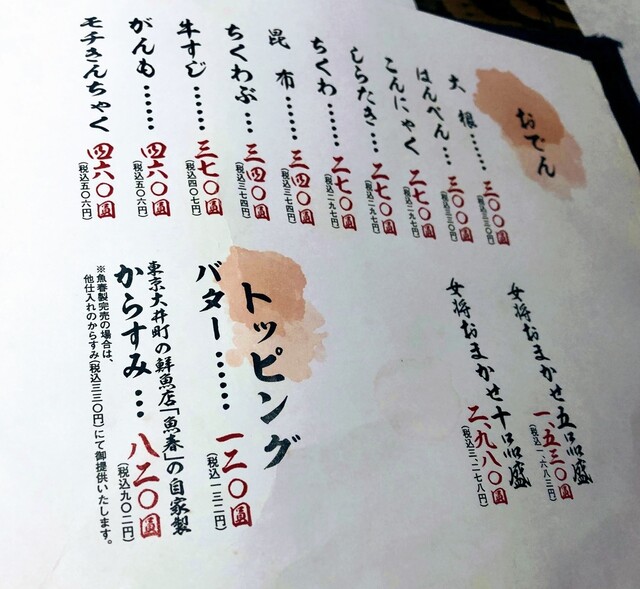 おでん
大根……三〇〇圓(税込三三〇円)
はんぺん…三〇〇圓(税込三三〇円)
こんにゃく 二七〇圓(税込二九七円)
しらたき…二七〇圓(税込二九七円)
ちくわ……二七〇圓(税込二九七円)
昆布……三四〇圓(税込三七四円)
ちくわぶ…三四〇圓(税込三七四円)
牛すじ……三七〇圓(税込四〇七円)
がんも……四六〇圓(税込五〇六円)
モチきんちゃく 四六〇圓(税込五〇六円)
女将おまかせ五品盛
一、五三〇圓(税込一、六八三円)
女将おまかせ十品盛
二、九八〇圓(税込三、二七八円)
トッピング
バター……一二〇圓(税込一三二円)
東京大井町の鮮魚店「魚春」の自家製
からすみ…八二〇圓(税込九〇二円)
※魚春製完売の場合は、
他仕入れのからすみ(税込三三〇円)にて御提供いたします。